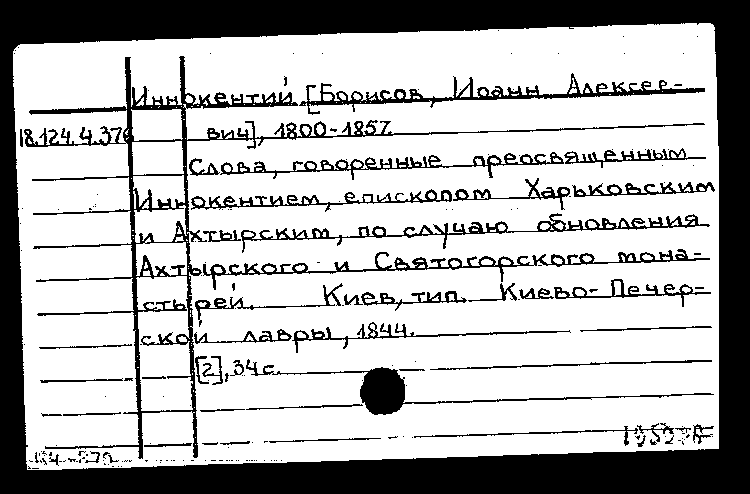 Иннокентий [Борисов, Иоанн Алексее-
18.124.4.376 вич], 1800-1857
Слова, говоренные преосвященным
Иннокентием, епископом Харьковским
и Ахтырским, по случаю обновления
Ахтырского и Святогорского мона=
стырей. Киев, тип. Киево-Печер=
ской лавры, 1844.
[2], 34 с.